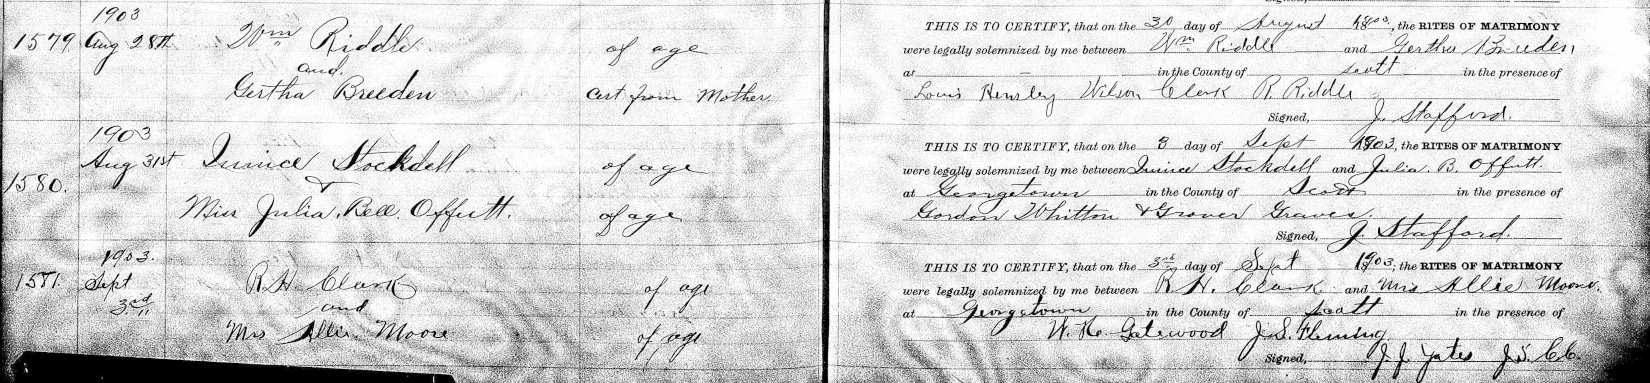 1903
1579. Aug 28th Wm Riddle of age
and
Gertha Breeden Cert from Mother
1903
Aug 31st Quince Stockdell of age
1580. &
Miss Julia. Bell. Offutt. of age
1903.
1581. Sept R. H. Clark of age
3rd and
Mrs Allie Moore of age
Signed,
THIS IS TO CERTIFY, that on the 30 day of August 1803, the RITES OF MATRIMONY
were legally solemnized by me between Wm Riddle and Gertha Breeden
at in the County of Scott in the presence of
Louis Hensley Wilson Clark R. Riddle
Signed, J. Stafford.
THIS IS TO CERTIFY, that on the 3 day of Sept 1903, the RITES OF MATRIMONY
were legally solemnized by me between Quince Stockdell and Julia. B. Offutt.
at Georgetown in the County of Scott in the presence of
Gordon Whitton & Grover Graves.
Signed, J. Stafford.
THIS IS TO CERTIFY, that on the 3rd day of Sept 1903, the RITES OF MATRIMONY
were legally solemnized by me between R. H. Clark and Mrs Allie Moore.
at Georgetown in the County of Scott in the presence of
Gatewood J. S. Fleming
Signed, J. J. Yates J. S. C. C.